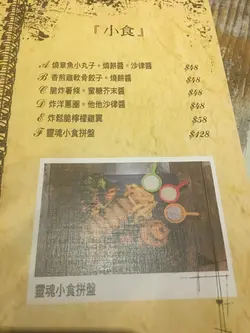 『小食』
A 燒章魚小丸子。燒餅醬。沙律醬 $48
B 香煎雞軟骨餃子。燒餅醬 $48
C 脆炸薯條。蜜糖芥末醬 $48
D 炸洋蔥圈。他他沙律醬 $48
E 炸鬆脆檸檬雞翼 $58
F 靈魂小食拼盤 $128
靈魂小食拼盤